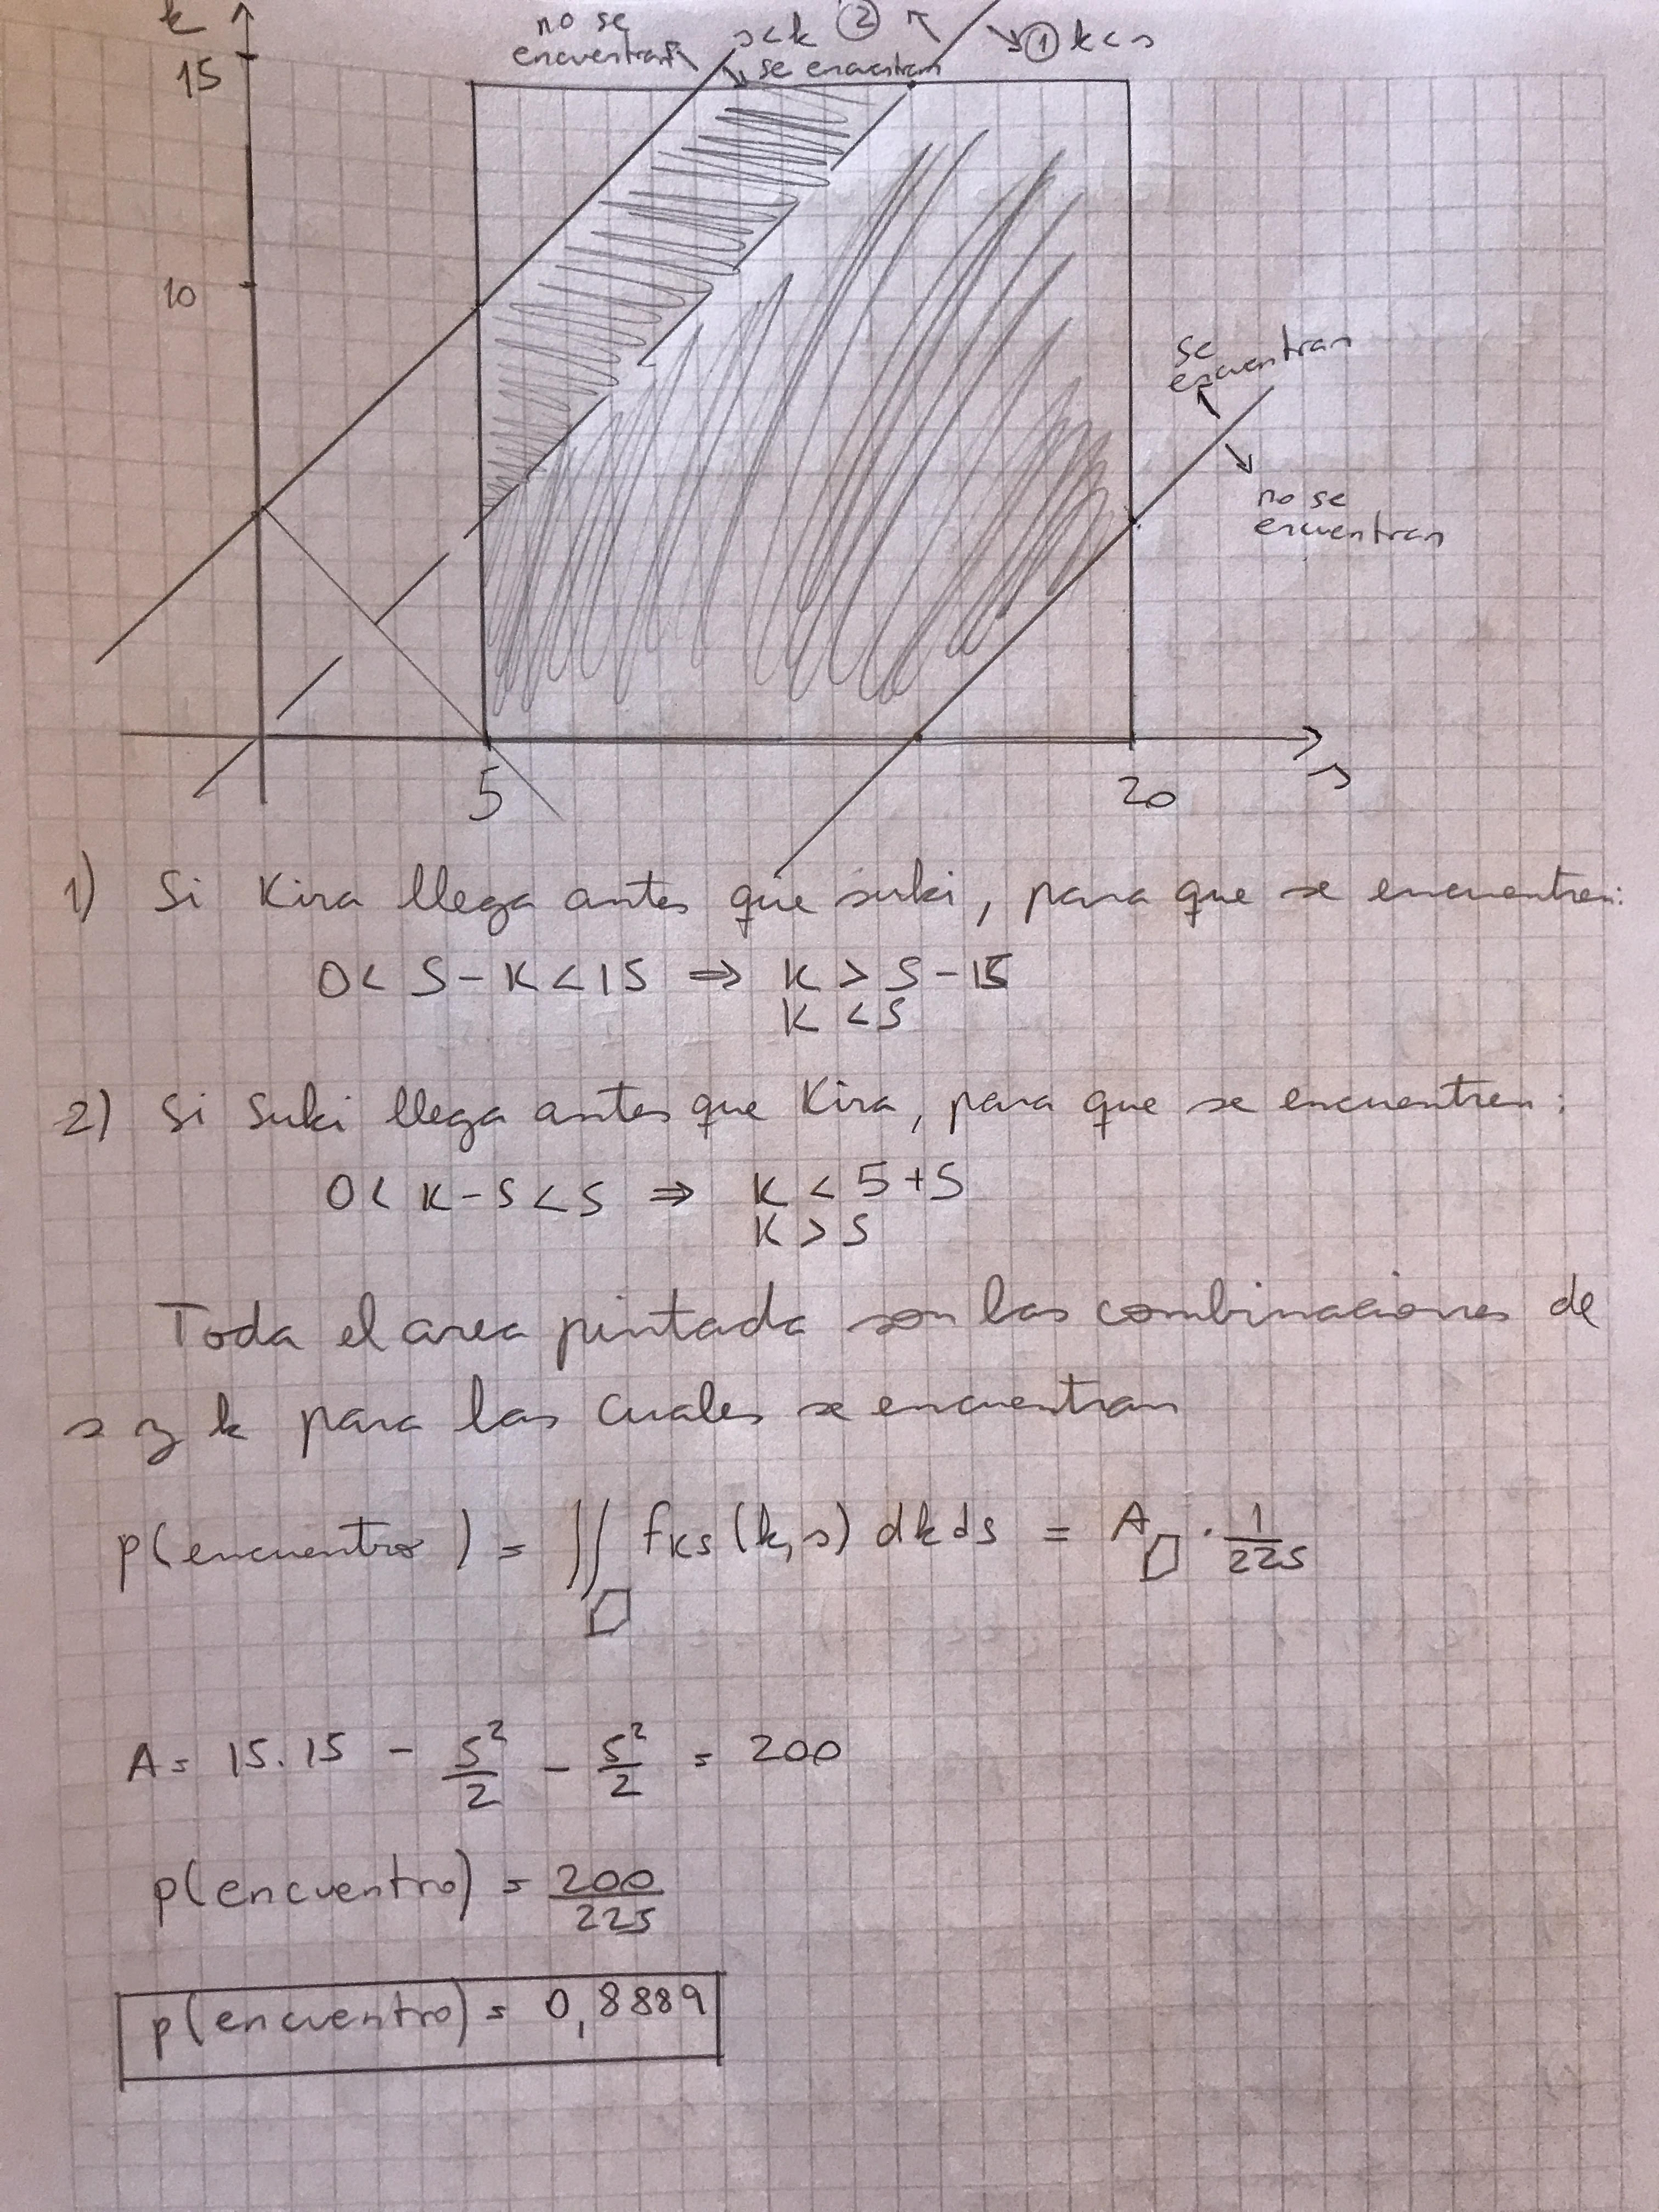 k
no se
encuentran
s<k ②
① k<s
se encuentran
15
10
se
encuentran
no se
encuentran
5
20
s
1) Si Kira llega antes que suki, para que se encuentren:
0< S-K<15 ⇒ K > S-15
K <S
2) Si Suki llega antes que Kira, para que se encuentren:
0< K-S<5 ⇒ K < 5+S
K > S
Toda el area pintada son las combinaciones de
s y k para las cuales se encuentran
p(encuentro) = ∬⬠ fKS (k,s) dkds = A⬠ · 1/225
A= 15.15 - 5²/2 - 5²/2 = 200
p(encuentro) = 200/225
p(encuentro) = 0,8889